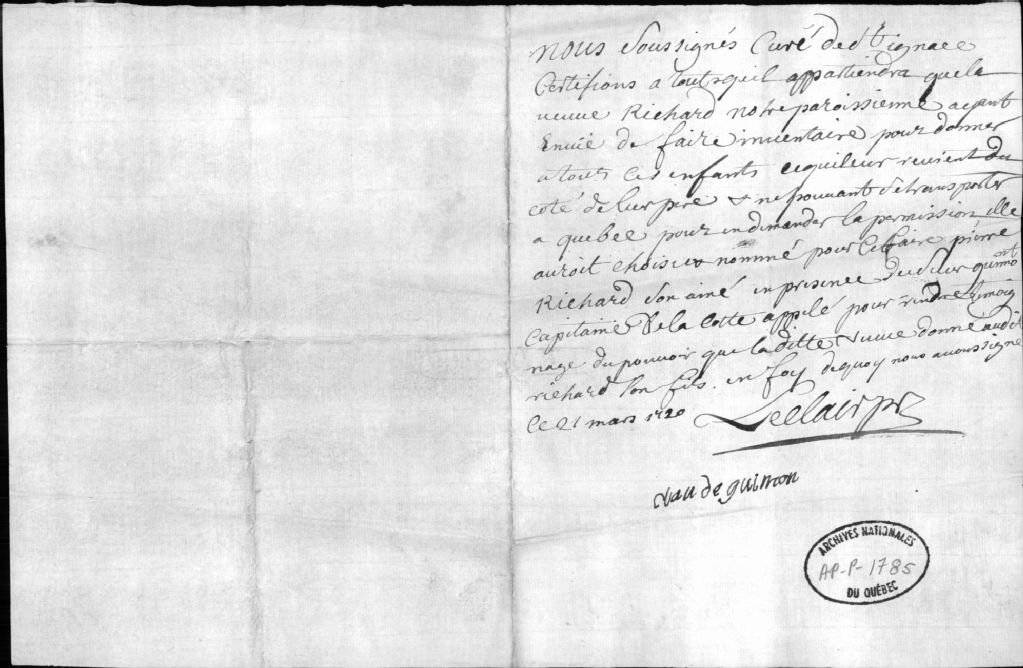 nous Soussignés Curé de St Ignace
Certifions a tout qu'il appartiendra que la
veuve Richard notre paroissienne ayant
Envie de faire inventaire pour donner
a tous ces enfants ce qui leur revient du
coté de leur pere & ne pouvant se transporter
a quebec pour en demander la permission elle
auroit choisi et nommé pour cet faire pierre
Richard son ainé en presence du Sieur guimont
Capitaine de la Coste appelé pour rendre temoig
nage du pouvoir que laditte veuve donne audit
richard son fils. en foy de quoy nous avons signé
Ce 21 mars 1720
Leclair ptr
de guimon
ARCHIVES NATIONALES
AP-P-1785
DU QUÉBEC